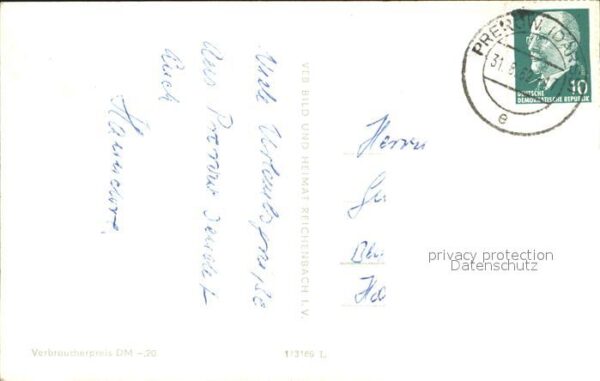 Viele Urlaubsgrüße
aus Prerow sendet
Euch
Herrn
VEB BILD UND HEIMAT REICHENBACH I. V.
PREROW (DARSS)
31. 8. 62
e
10
DEUTSCHE
DEMOKRATISCHE REPUBLIK
privacy protection
Datenschutz
Verbraucherpreis DM -.20